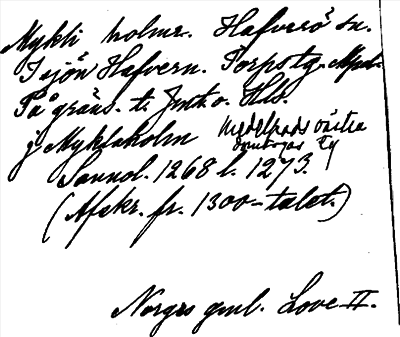 Mykli holmr. Hafverö sn.
I sjön Hafvern. Torpstg. Mpd.
På gräns. t. Jmtl o. Hls.
j Myklaholm Medelpads östra
domsagas
Sannol. 1268 l. 1273.
(Afskr. fr. 1300-talet.)
Norges gml. Love II.